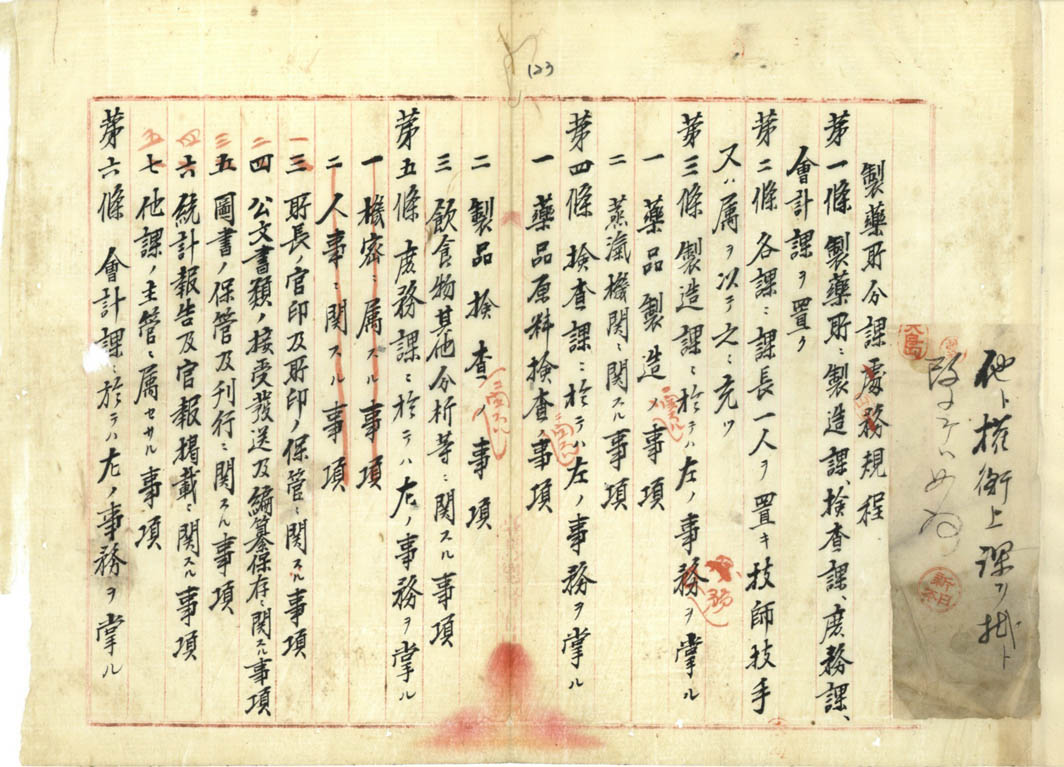 123
他ト權衡上課ヲ掛ト
改ムヘキヤ
製藥所分課處務規程
第一條 製藥所ニ製造課、檢査課、庶務課、
會計課ヲ置ク
第二條 各課ニ課長一人ヲ置キ技師技手
又ハ属ヲ以テ之ニ充ツ
第三條 製造課ニ於テハ左ノ事務ヲ掌ル
一 藥品製造ノ事項
二 蒸滊機関ニ関スル事項
第四條 檢査課ニ於テハ左ノ事務ヲ掌ル
一 藥品原料檢査ノ事項
二 製品檢査ノ事項
三 飲食物其他分析等ニ関スル事項
第五條 庶務課ニ於テハ左ノ事務ヲ掌ル
一 機密ニ属スル事項
二 人事ニ関スル事項
一 三 所長ノ官印及所印ノ保管ニ関スル事項
二 四 公文書類ノ接受發送及編纂保存ニ関スル事項
三 五 圖書ノ保管及刊行ニ関スル事項
四 六 統計報告及官報掲載ニ関スル事項
五 七 他課ノ主管ニ属セサル事項
第六條 會計課ニ於テハ左ノ事務ヲ掌ル